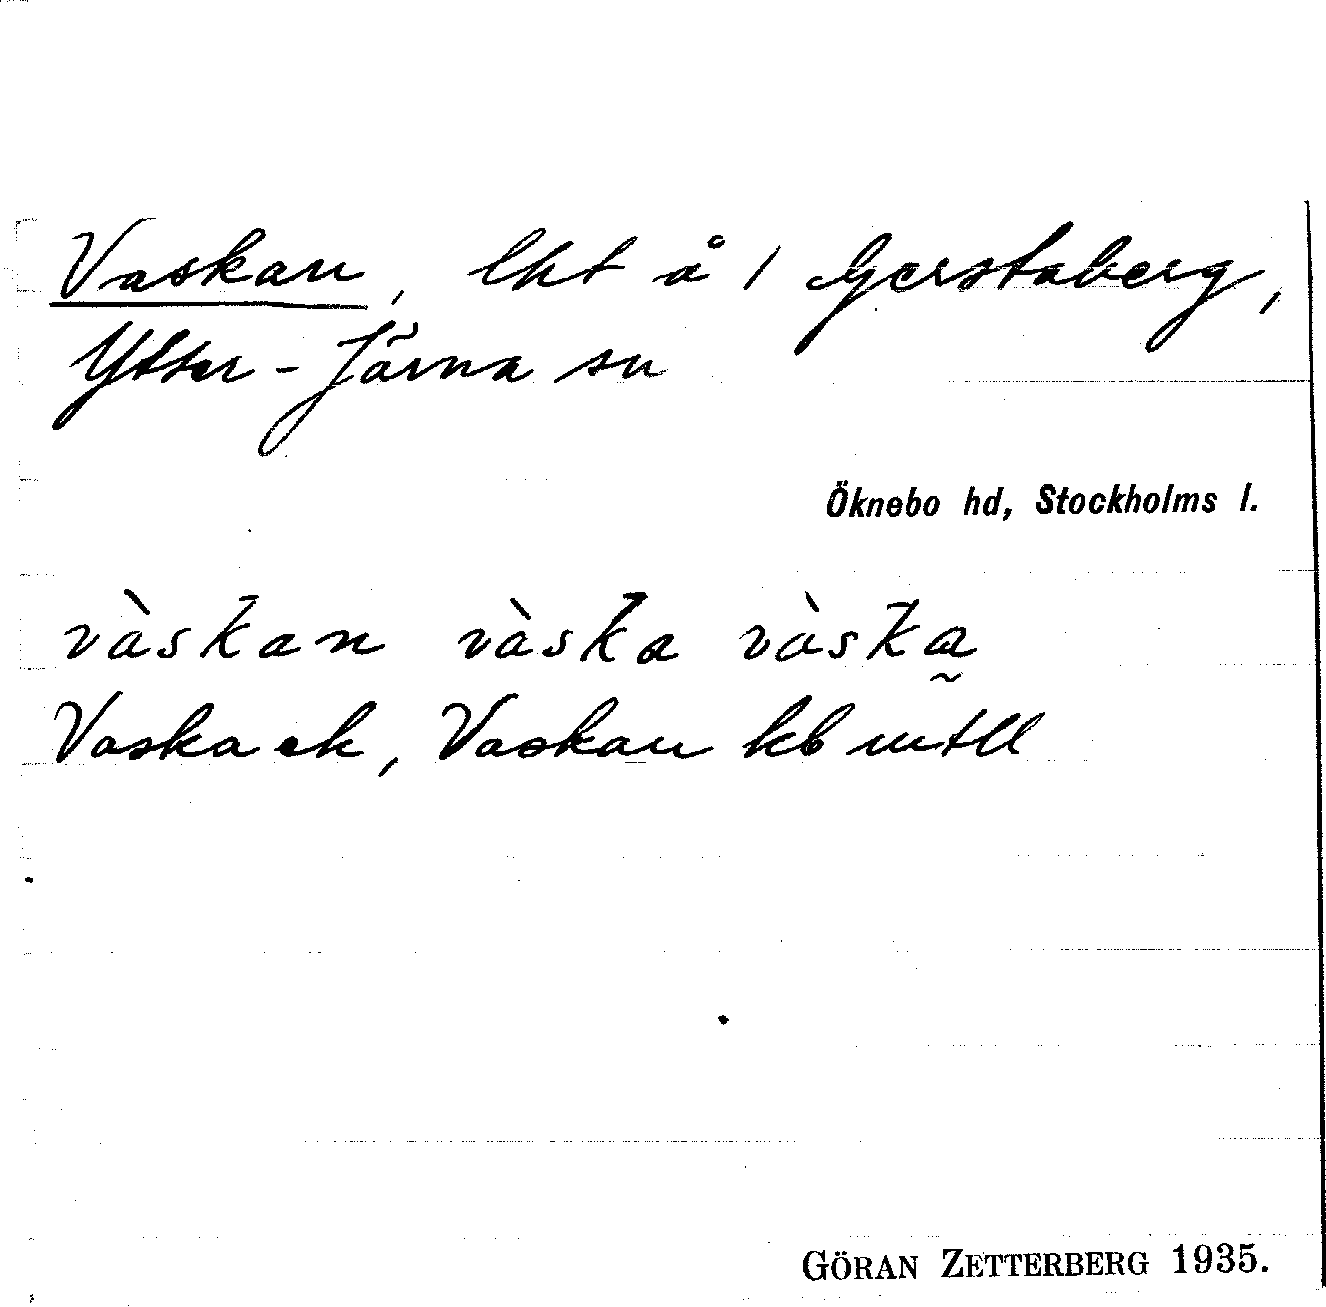 Vaskan, lht å 1 Gerstaberg,
Ytter-Järna sn
Öknebo hd, Stockholms l.
vàskan vàska vàska
Vaska ek, Vaskan kb mtll
GÖRAN ZETTERBERG 1935.